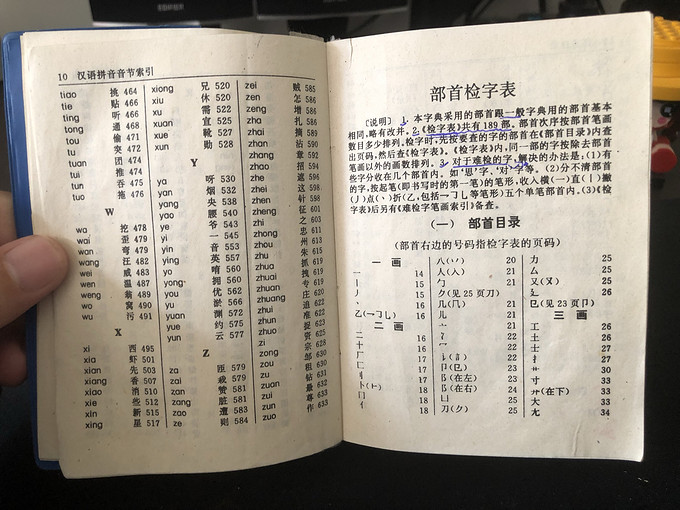 10 汉语拼音音节索引
tiao 挑 464
tie 贴 466
ting 听 467
tong 通 468
tou 偷 471
tu 突 472
tuan 团 474
tui 推 474
tun 吞 475
tuo 拖 476
W
wa 挖 478
wai 歪 479
wan 弯 479
wang 汪 482
wei 威 483
wen 温 487
weng 翁 489
wo 窝 490
wu 污 491
X
xi 西 495
xia 虾 501
xian 先 503
xiang 香 507
xiao 消 510
xie 些 512
xin 新 515
xing 星 517
xiong 兄 520
xiu 休 520
xu 需 522
xuan 宣 525
xue 靴 527
xun 勋 528
Y
ya 呀 530
yan 烟 532
yang 央 538
yao 腰 540
ye 爷 543
yi 一 545
yin 音 553
ying 英 557
yo 唷 560
yong 拥 560
you 优 562
yu 淤 566
yuan 渊 572
yue 约 575
yun 云 577
Z
za 匝 579
zai 579
zan 581
zang 脏 581
zao 遭 583
ze 则 584
zei 贼 585
zen 怎 586
zeng 增 586
zha 扎 586
zhai 摘 589
zhan 沾 590
zhang 章 592
zhao 招 595
zhe 遮
zhei 这 598
zhen 针 598
zheng 征
zhi 之 603
zhong 忠 611
zhou 州 613
zhu 朱 615
zhua 抓 619
zhuai 拽 619
zhuan 专 619
zhuang 庄 620
zhui 追 622
zhun 准 622
zhuo 捉 623
zi 资 625
zong 宗 628
zou 邹 630
zu 租 630
zuan 钻 632
zui 最 632
zun 尊 633
zuo 作 633
部首检字表
〔说明〕 1. 本字典采用的部首跟一般字典用的部首基本
相同,略有改并。2.《检字表》共有189部。部首次序按部首笔画
数目多少排列。检字时,先按要查的字的部首在《部首目录》内查
出页码,然后查《检字表》。《检字表》内,同一部的字按除去部首
笔画以外的画数排列。3. 对于难检的字,解决的办法是:(1)有
些字分收在几个部首内。如“思”字、“对”字等。(2)分不清部首
的字,按起笔(即书写时的第一笔)的笔形,收入横(一)直(丨)撇
(丿)点(丶)折(乙,包括㇕亅乚等笔形)五个单笔部首内。(3)《检
字表》后另有《难检字笔画索引》备查。
(一) 部首目录
(部首右边的号码指检字表的页码)
一 画
一 14
丨 15
丿 15
丶 16
乙(㇕亅乚) 16
二 画
二 16
十 16
厂 16
匚 17
刂 17
卜(⺊) 18
冂 18
亻 18
八(丷) 20
人(入) 21
勹 21
⺈(见25页刀)
几(几) 21
儿 21
亠 21
冫 21
冖 22
讠(訁) 22
卩(㔾) 23
阝(在左) 23
阝(在右) 24
凵 25
刀(⺈) 25
力 25
厶 25
又(ヌ) 25
廴 26
㔾(见23页卩)
三 画
工 26
土 26
士 27
扌 27
艹 30
寸 33
廾(在下) 33
大 33
尢 34